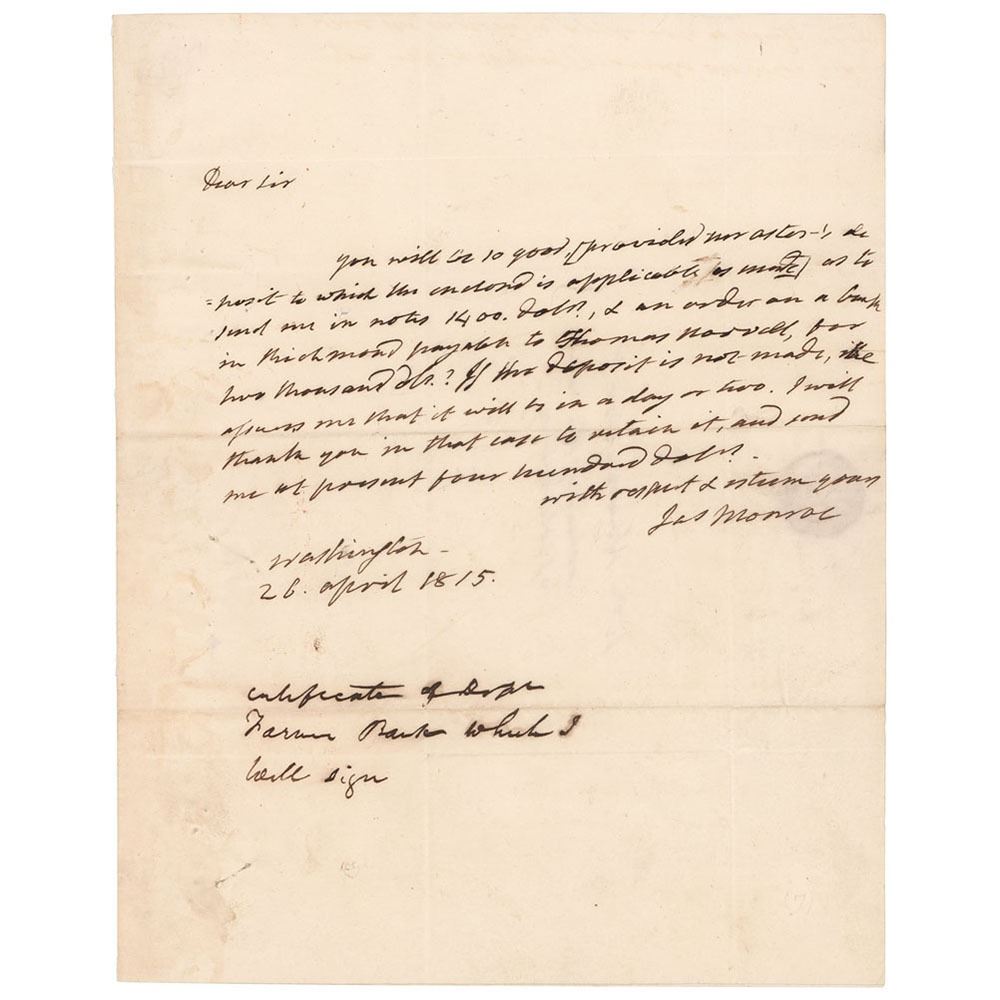 Dear Sir
you will be so good, [provided mr Astor's de
=posit to which the enclosed is applicable is made] as to
send me in notes 1400. dolrs., & an order on a bank
in Richmond payable to Thomas Harvell, for
two thousand dolrs.? If the deposit is not made, the
assures me that it will be in a day or two. I will
thank you in that case to retain it, and send
me at present four hundred dolrs.
with respect & esteem yours
Jas Monroe
Washington -
26. april 1815.
certificate of Dept
Farmer Bank which I
will sign
(7)